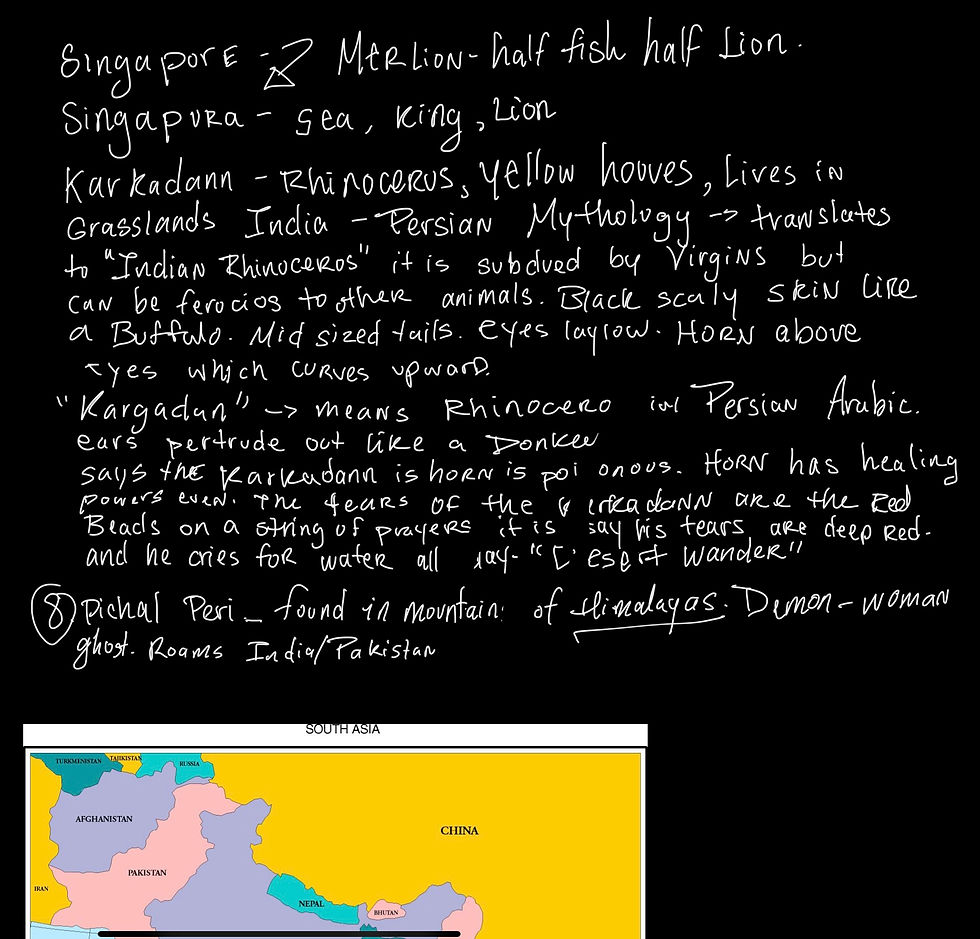 Singapore - Merlion - half fish half Lion.
Singapura - sea, king, Lion
Karkadann - Rhinocerus, yellow hooves, Lives in
Grasslands India - Persian Mythology -> translates
to "Indian Rhinoceros" it is subdued by Virgins but
can be ferocios to other animals. Black scaly skin like
a Buffulo. Mid sized tails. eyes laylow. Horn above
eyes which curves upward.
"Kargadan" -> means Rhinocero in Persian Arabic.
ears pertrude out like a Donkee
says the Karkadann is horn is poi onous. Horn has healing
powers even. The tears of the k rkadann are the Red
Beads on a string of prayers it is say his tears are deep red.
and he cries for water all day - "D esert Wander"
⑧ Pichal Peri - found in mountain of Himalayas. Demon-woman
ghost. Roams India/Pakistan
SOUTH ASIA
TURKMENISTAN TAJIKISTAN RUSSIA
AFGHANISTAN
CHINA
PAKISTAN
IRAN
NEPAL
BHUTAN